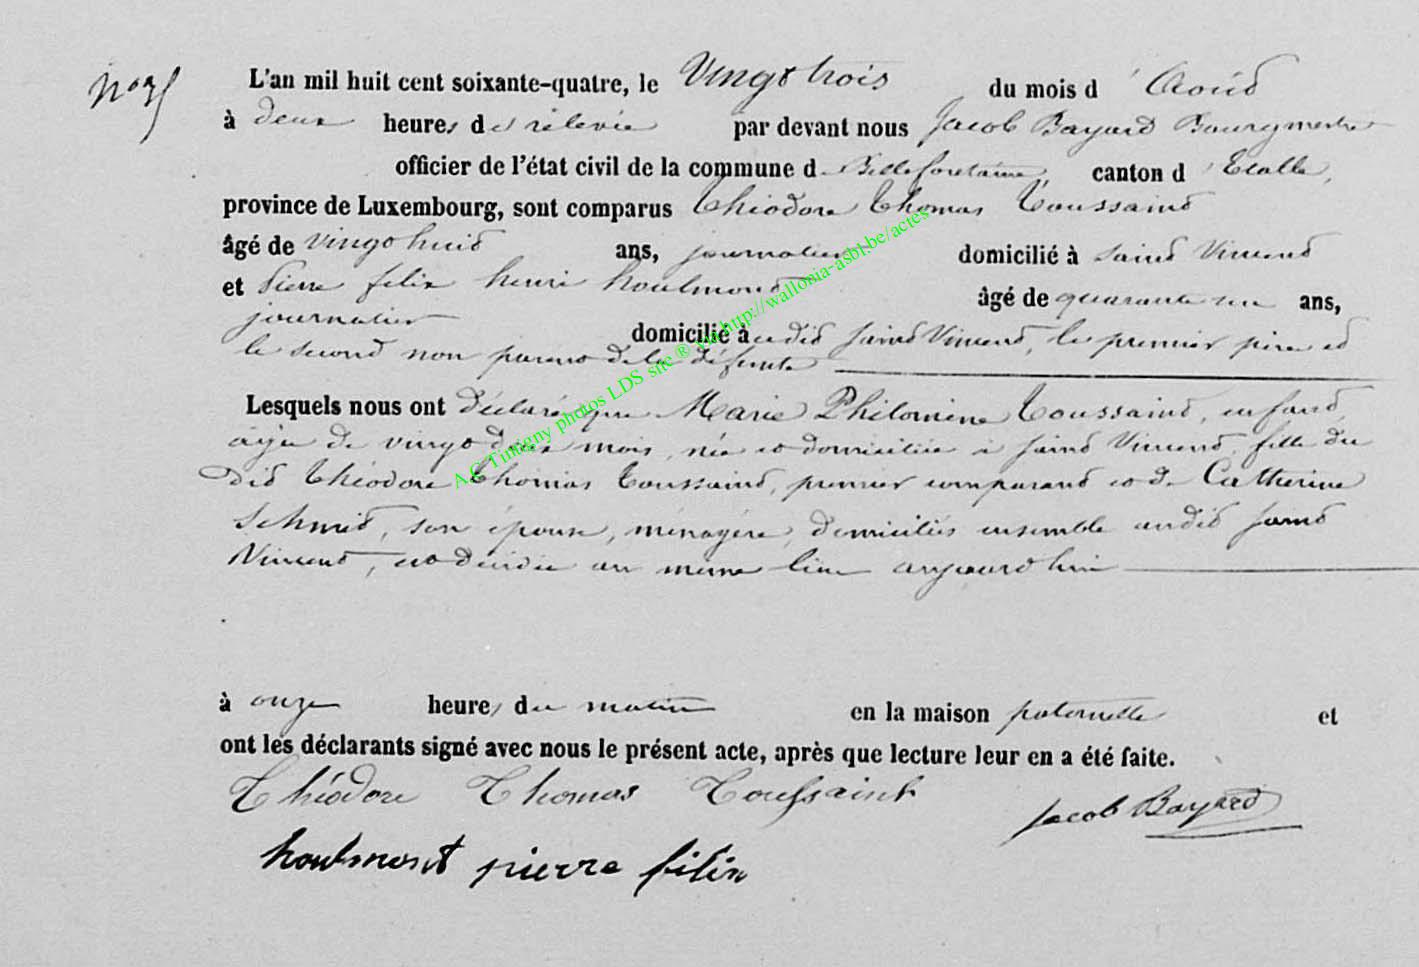 L'an mil huit cent soixante-quatre, le Vingt trois du mois d'Août
à deux heures de rélevée par devant nous Jacob Bayard Bourgmestre
officier de l'état civil de la commune de Bellefontaine, canton d'Etalle,
province de Luxembourg, sont comparus Théodore Thomas Toussaint
âgé de vingt huit ans, journalier domicilié à Saint Vincent
et Pierre félix henri houlmont âgé de quarante un ans,
journalier domicilié audit Saint Vincent, le premier père et
le second non parent de la défunte
Lesquels nous ont déclaré que Marie Philomène Toussaint, enfant,
agée de vingt deux mois, née et domiciliée à Saint Vincent, fille du
dit Théodore Thomas Toussaint, premier comparant et de Catherine
Schmit, son épouse, ménagère, domiciliés ensemble audit Saint
Vincent, est décédée au même lieu aujourd'hui
à onze heures du matin en la maison paternelle et
ont les déclarants signé avec nous le présent acte, après que lecture leur en a été faite.
Théodore Thomas Toussaint
Jacob Bayard
houlmont pierre félix
A.C Tintigny photos LDS site ® via http://wallonia-asbl.be/actes